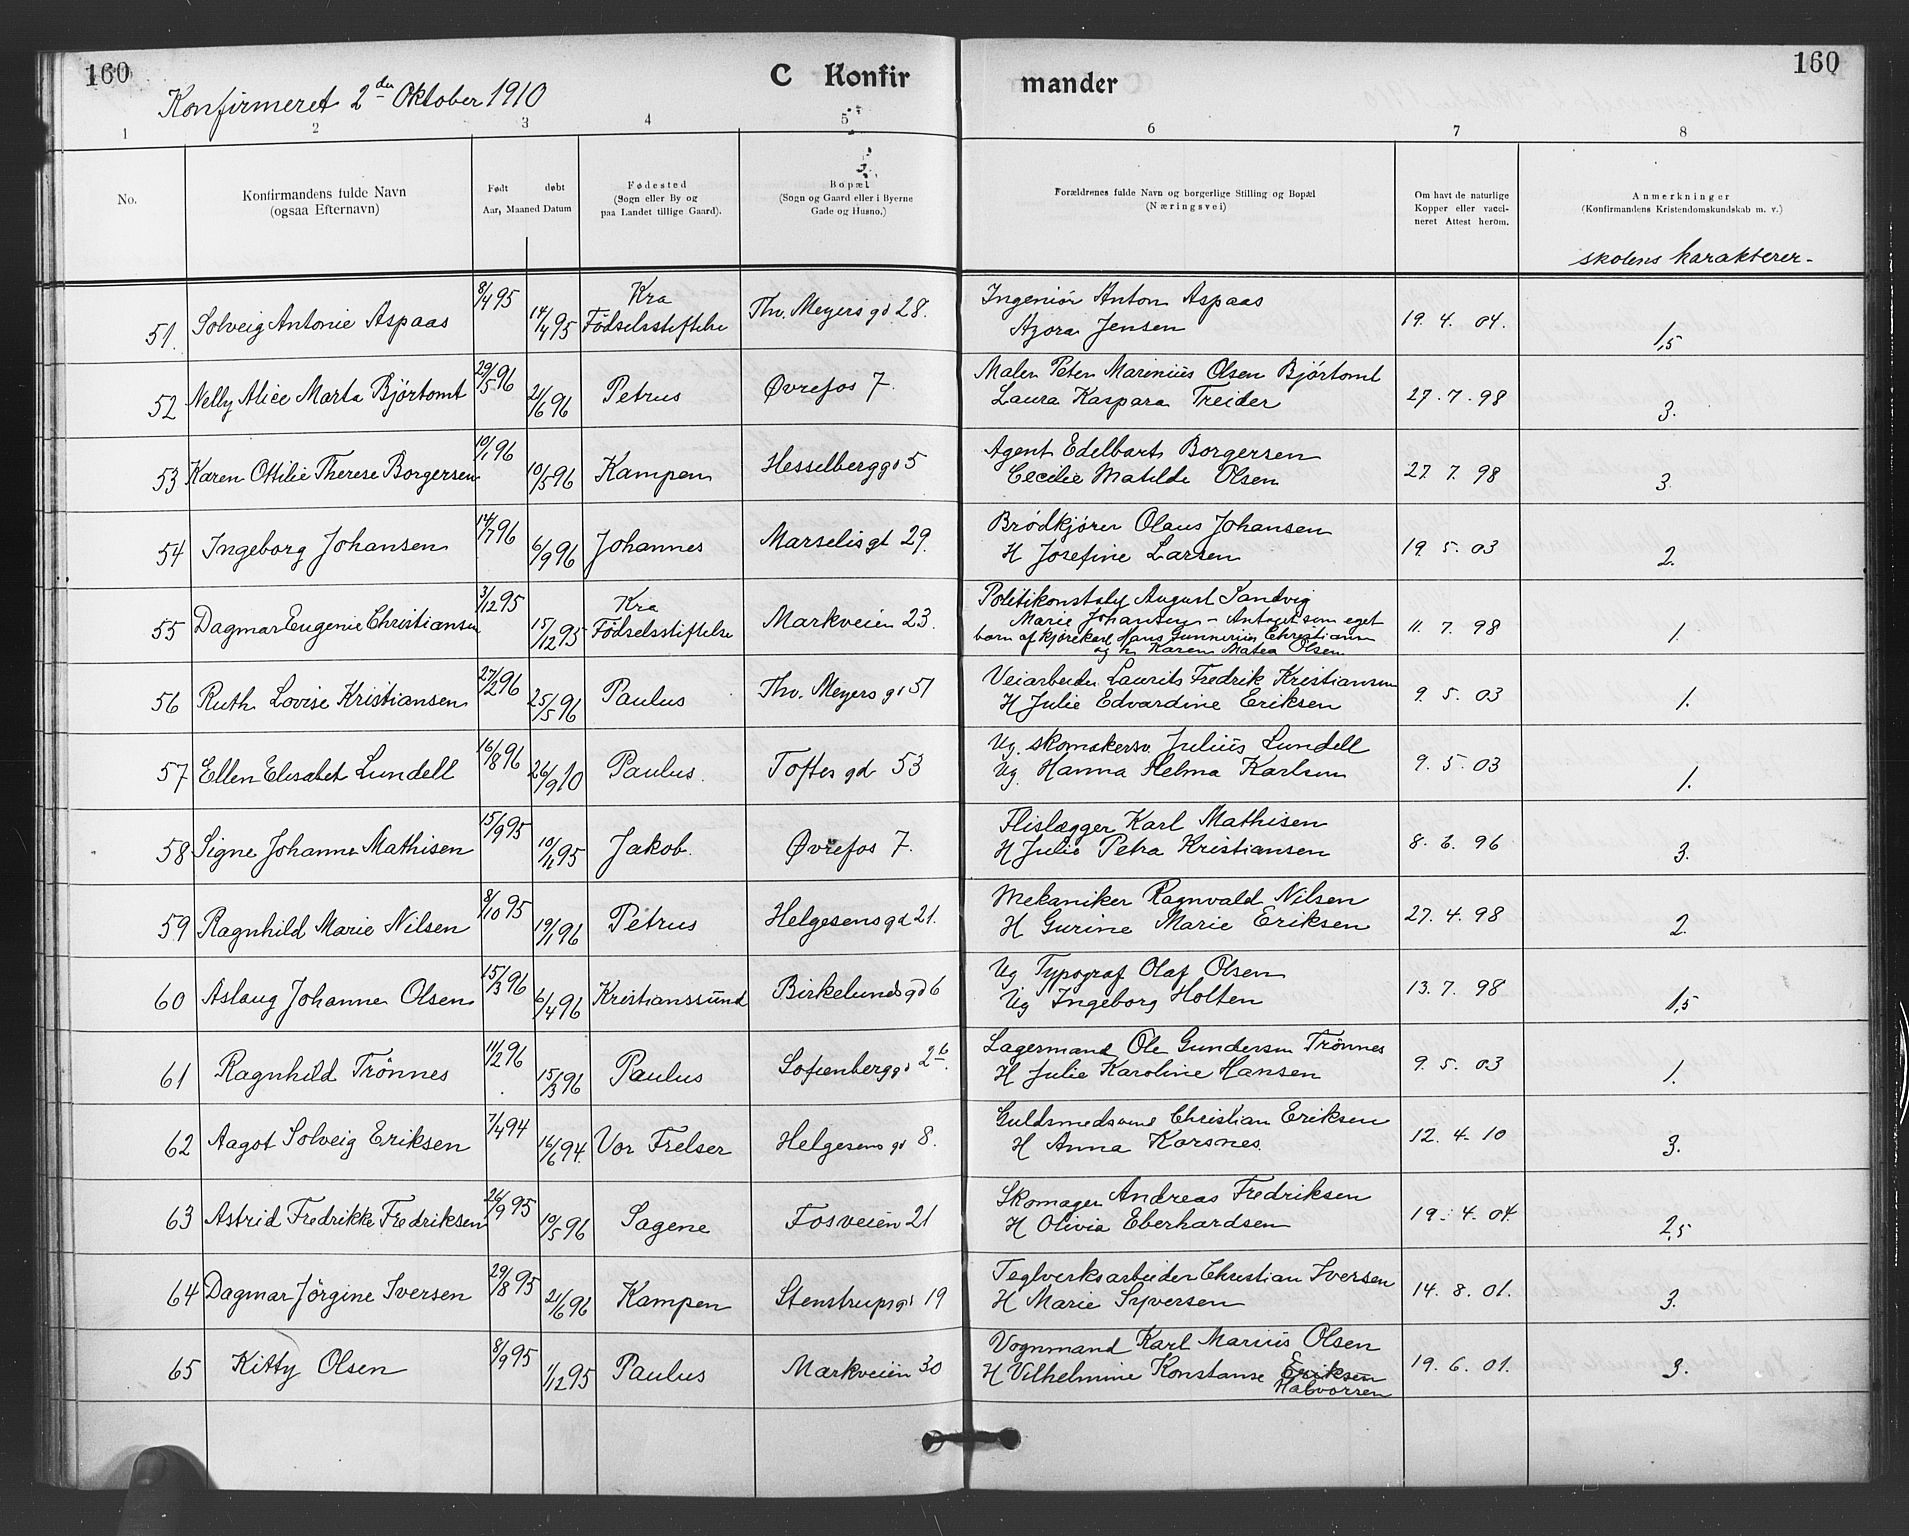 160
C Konfir
mander
160
Konfirmeret 2den Oktober 1910
1 2 3 4 5 6 7 8
No.
Konfirmandens fulde Navn
(ogsaa Efternavn)
Født døbt
Aar, Maaned Datum
Fødested
(Sogn eller By og
paa Landet tillige Gaard).
Bopæl
(Sogn og Gaard eller i Byerne
Gade og Husno.)
Forældrenes fulde Navn og borgerlige Stilling og Bopæl
(Næringsvei)
Om havt de naturlige
Kopper eller vacci-
neret Attest herom.
Anmerkninger
(Konfirmandens Kristendomskundskab m. v.)
skolens karakterer-
51. Solveig Antonie Aspaas 8/4 95 14/4 95 Kra Födselsstiftelse Thv. Meyers gd 28. Ingeniör Anton Aspaas
Azora Jensen 19. 4. 04. 1,5
52 Nelly Alice Marta Bjørtomt 29/5 96 21/6 96 Petrus Øvrefos 7. Maler Peter Marinius Olsen Bjørtomt
Laura Kaspara Treider 27. 7. 98 3.
53 Karen Ottilie Therese Borgersen 10/1 96 10/5 96 Kampen Hesselberggd 5 Agent Edelbart Borgersen
Cecilie Matilde Olsen 27. 7. 98 3.
54 Ingeborg Johansen 14/7 96 6/9 96 Johannes Marselisgt 29. Brödkjörer Olaus Johansen
H Josefine Larsen 19. 5. 03 2.
55 Dagmar Eugenie Christiansen 3/12 95 15/12 95 Kra Födselsstiftelse Markveien 23. Politikonstabl August Sandvig
Marie Johansen - Antaget som eget
barn af kjörekarl Hans Gunnerius Christiansen
og h. Karen Matea Olsen 11. 7. 98 1.
56 Ruth Lovise Kristiansen 27/2 96 25/5 96 Paulus Thv. Meyers gd 51 Veiarbeider Laurits Fredrik Kristiansen
H Julie Edvardine Eriksen 9. 5. 03 1.
57 Ellen Elisabet Lundell 16/8 96 26/9 10 Paulus. Toftes gd 53 Ug. skomakersv. Julius Lundell
Ug. Hanna Helma Karlsen 9. 5. 03 1.
58 Signe Johanne Mathisen 15/9 95 10/11 95 Jakob. Øvrefos 7. Flislægger Karl Mathisen
H Julie Petra Kristiansen 8. 6. 96 3.
59 Ragnhild Marie Nilsen 8/10 95 19/1 96 Petrus Helgesens gd 21. Mekaniker Ragnvald Nilsen
H Gurine Marie Eriksen 27. 4. 98 2.
60 Aslaug Johanne Olsen 15/3 96 6/4 96 Kristianssund Birkelunds gd 6 Ug Typograf Olaf Olsen
Ug Ingeborg Holten 13. 7. 98 1,5
61 Ragnhild Trönnes 11/2 96 15/3 96 Paulus Sofienberggd 2b. Lagermand Ole Gundersen Trönnes
H Julie Karoline Hansen 9. 5. 03 1.
62 Aagot Solveig Eriksen 7/4 94 16/6 94. Vor Frelser Helgesens gd 8. Guldsmedsvend Christian Eriksen
H Anna Korsnes. 12. 4. 10 3.
63 Astrid Fredrikke Fredriksen 26/9 95 10/5 96 Sagene Fosveien 21 Skomager Andreas Fredriksen
H Olivia Eberhardsen 19. 4. 04. 2,5
64 Dagmar Jörgine Iversen 29/8 95 21/6 96 Kampen Stenstrupsgd 19 Teglverksarbeider Christian Iversen
H Marie Syversen 14. 8. 01. 3.
65 Kitty Olsen 8/9 95 1/12 95 Paulus Markveien 30 Vognmand Karl Marius Olsen
H Vilhelmine Konstanse Eriksen
Halvorsen 19. 6. 01. 3.